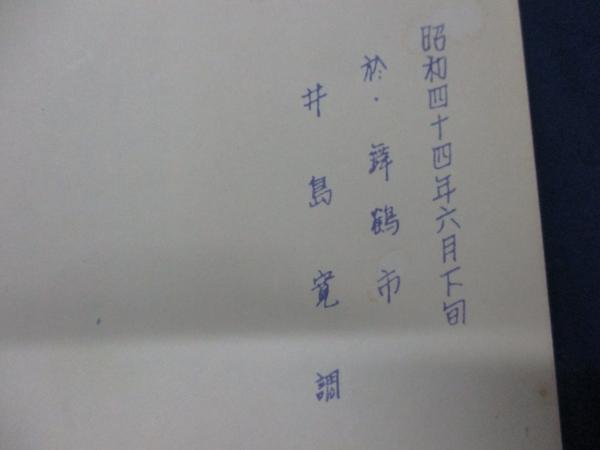 昭和四十四年六月下旬
於・舞鶴市
井島寛調